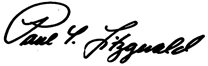 Paul G. Fitzgerald